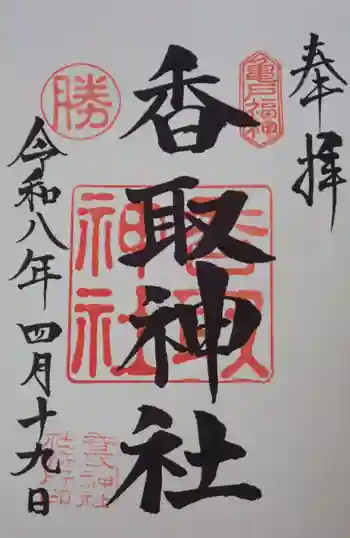 奉拝
亀戸福神
香取神社
香取神社
勝
令和八年四月十九日